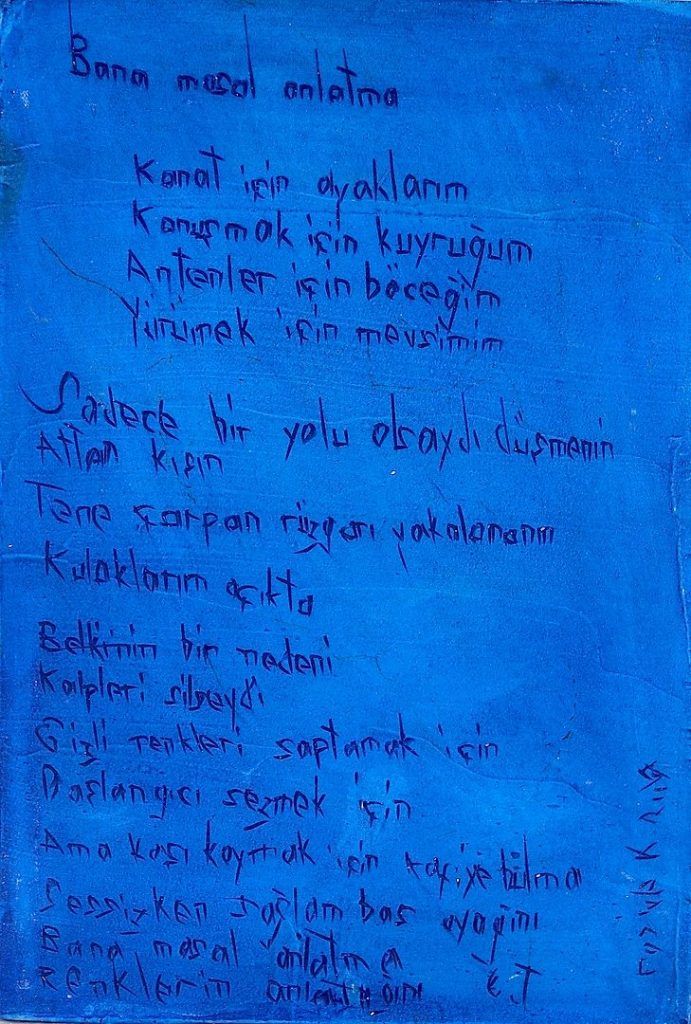 Bana masal anlatma
Kanat için ayaklarım
Konuşmak için kuyruğum
Antenler için böceğim
Yürümek için mevsimim
Sadece bir yolu olsaydı düşmenin
Attan kışın
Tene çarpan rüzgarı yakalamanın
Kulaklarım açıkta
Belkinin bir nedeni
Kalpleri silseydi
Gizli renkleri saptamak için
Başlangıcı sezmek için
Ama kaşı kaymak için
Sessizken sağlam bas ayağını
Bana masal anlatma
Renklerin anlattığını